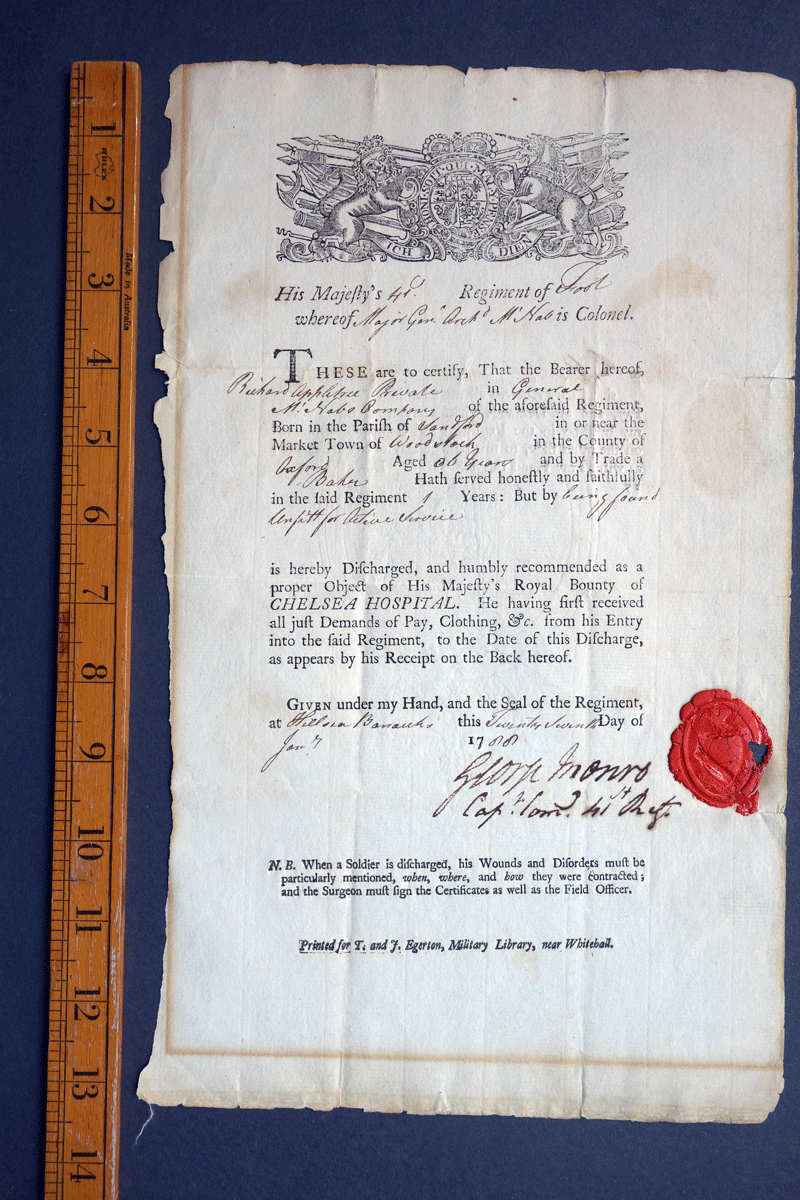 1
RULEX
2
Made in Australia
3
4
5
6
7
8
9
10
11
12
13
14
HONI·SOIT·QUI·MAL·Y·PENSE
ICH DIEN
His Majeſty's Regiment of Foot
whereof Major Genˡ Archᵈ Mᶜ Nab is Colonel.
THESE are to certify, That the Bearer hereof,
Richard Appletree Private in General
Mᶜ Nabs Company of the aforeſaid Regiment,
Born in the Pariſh of Sandford in or near the
Market Town of Woodstock in the County of
Oxford Aged Years and by Trade a
Baker Hath ſerved honeſtly and faithfully
in the ſaid Regiment Years: But by being found
Unfitt for Active Service
is hereby Diſcharged, and humbly recommended as a
proper Object of His Majeſty's Royal Bounty of
CHELSEA HOSPITAL. He having firſt received
all juſt Demands of Pay, Clothing, &c. from his Entry
into the ſaid Regiment, to the Date of this Diſcharge,
as appears by his Receipt on the Back hereof.
GIVEN under my Hand, and the Seal of the Regiment,
at Hillsea Barracks this Twenty Day of
Janʸ 1788
George Monro
Capᵗ Comᵈ 41ˢᵗ Regᵗ
N. B. When a Soldier is diſcharged, his Wounds and Diſorders muſt be
particularly mentioned, when, where, and how they were contracted;
and the Surgeon muſt ſign the Certificates as well as the Field Officer.
Printed for T. and J. Egerton, Military Library, near Whitehall.